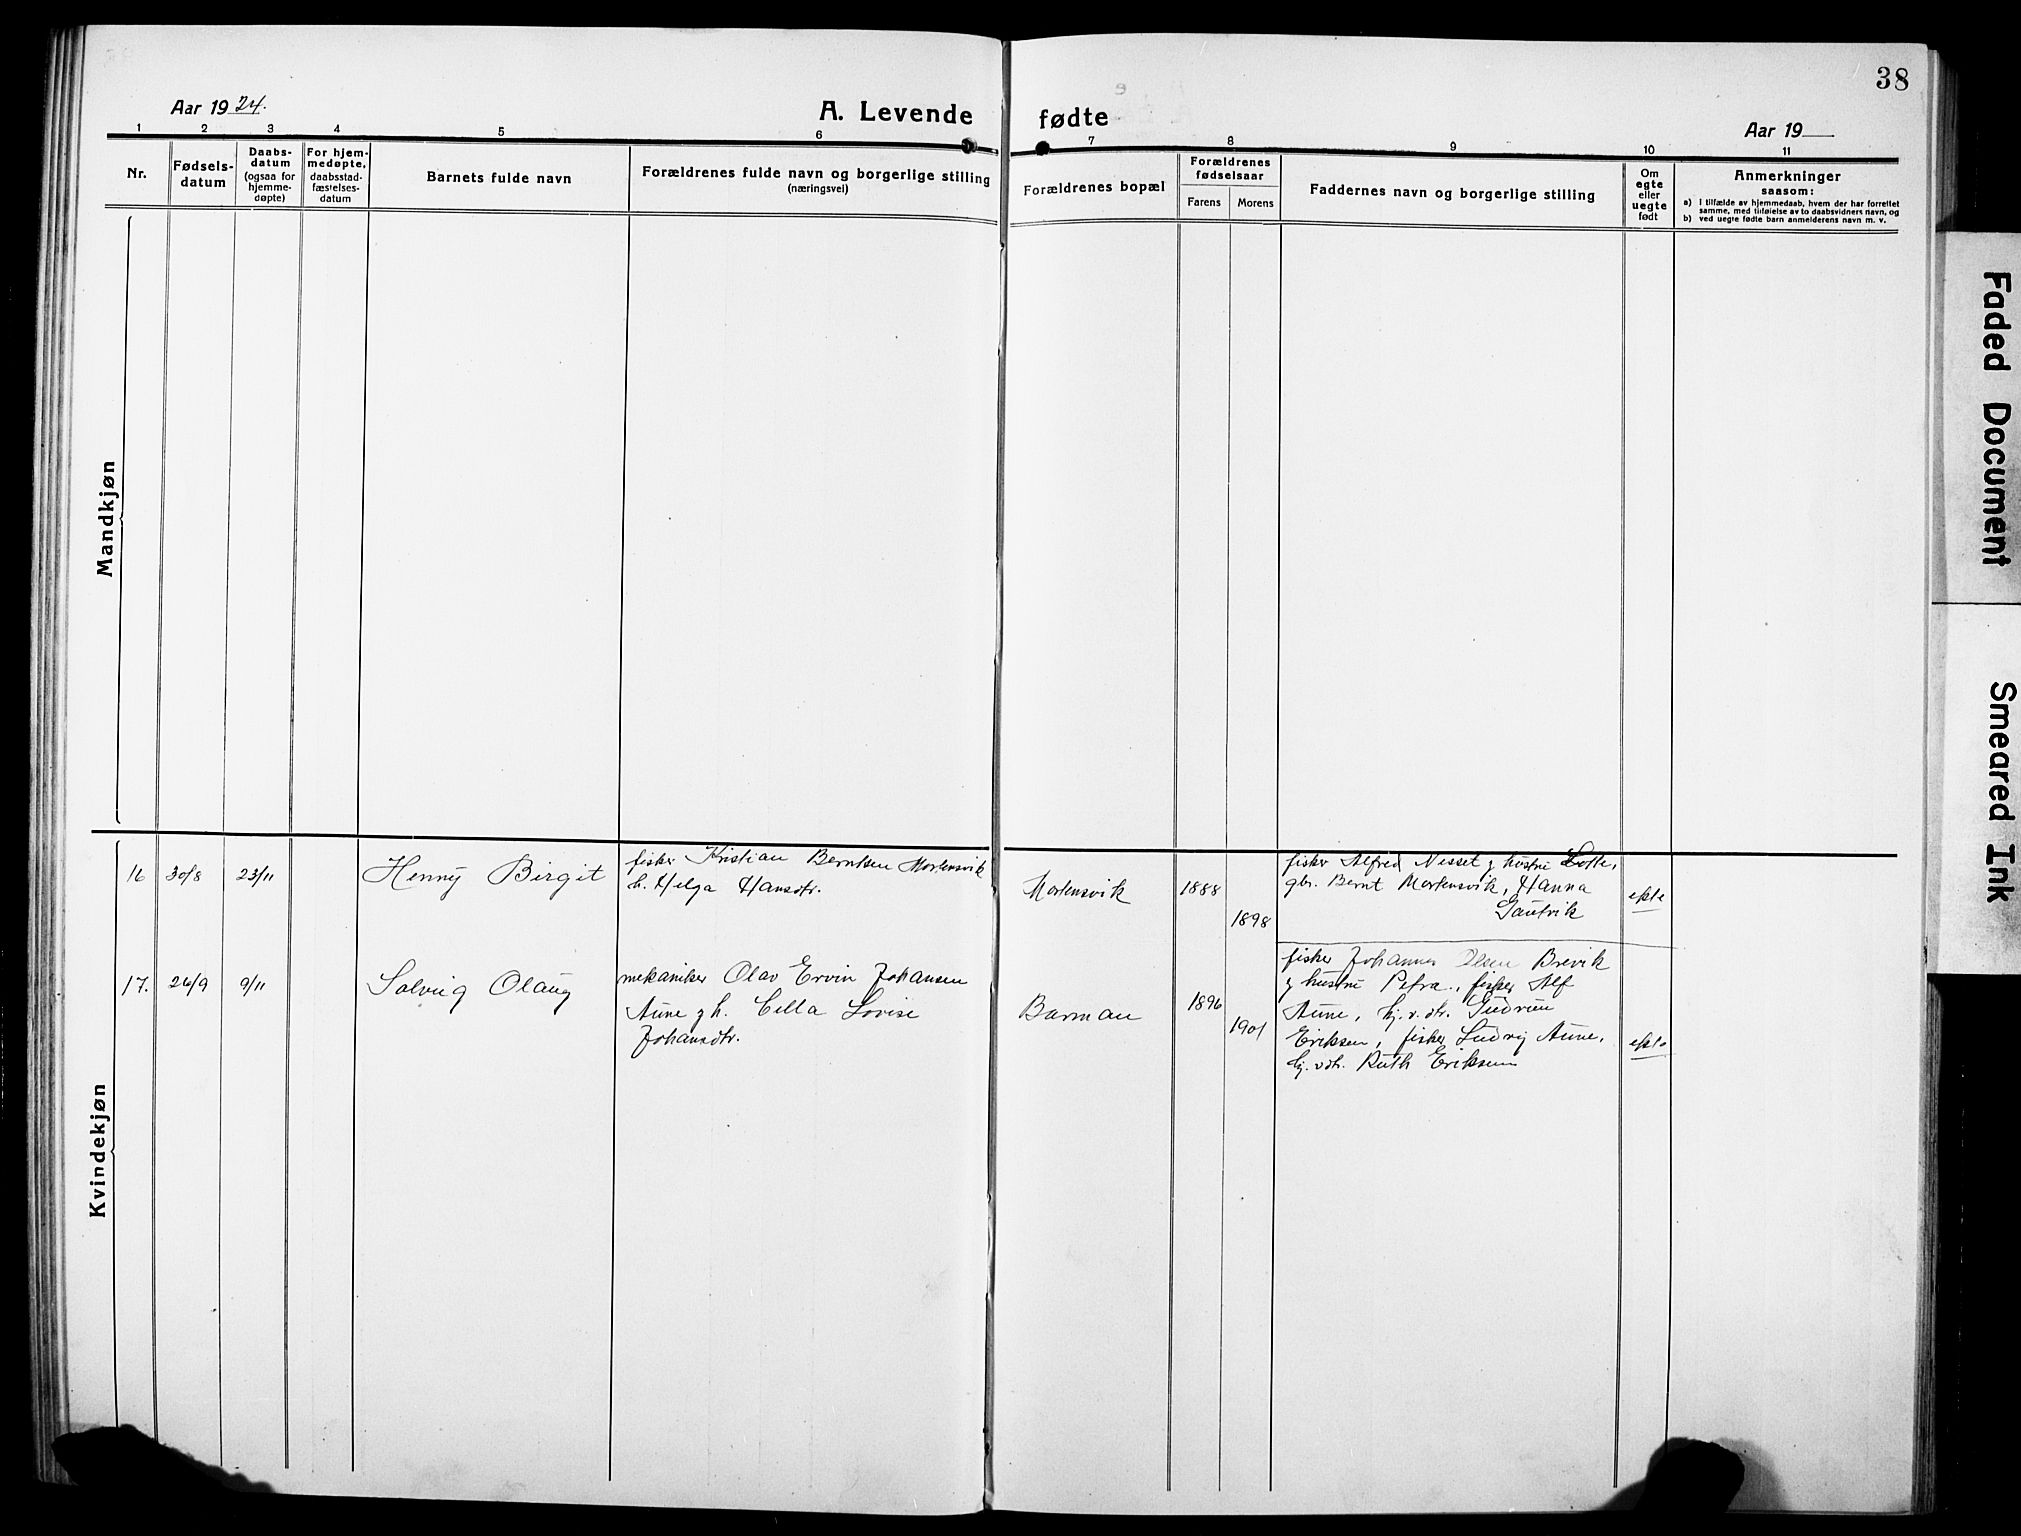 38
Aar 1924.
A. Levende fødte
Aar 19
1 2 3 4 5 6 7 8 9 10 11
Nr.
Fødsels-
datum
Daabs-
datum
(ogsaa for
hjemme-
døpte)
For hjem-
medøpte,
daabsstad-
fæstelses-
datum
Barnets fulde navn
Forældrenes fulde navn og borgerlige stilling
(næringsvei)
Forældrenes bopæl
Forældrenes
fødselsaar
Farens Morens
Faddernes navn og borgerlige stilling
Om
egte
eller
uegte
født
Anmerkninger
saasom:
a) I tilfælde av hjemmedaab, hvem der har forrettet
samme, med tilføielse av to daabsvidners navn, og
b) ved uegte fødte barn anmelderens navn m. v.
Mandkjøn
Kvindekjøn
16 30/8 23/11 Henny Birgit
fisker Kristian Berntsen Mortensvik
h. Helga Hansdtr.
Mortensvik 1888
1898
fisker Alfred Nesset g hustru Lotte,
gbr. Bernt Mortensvik, Hanna
Gautvik
ekte
17. 26/9 9/11 Solveig Olaug
mekaniker Olav Ervin Johansen
Aune g h. Cella Lovise
Johansdtr.
Barman 1896
1901
fisker Johannes Olsen Brevik
g hustru Petra, fisker Alf
Aune, hj. v. dtr. Gudrun
Eriksen, fisker Ludvig Aune,
hj. v dtr. Ruth Eriksen
ekte
Faded Document
Smeared Ink